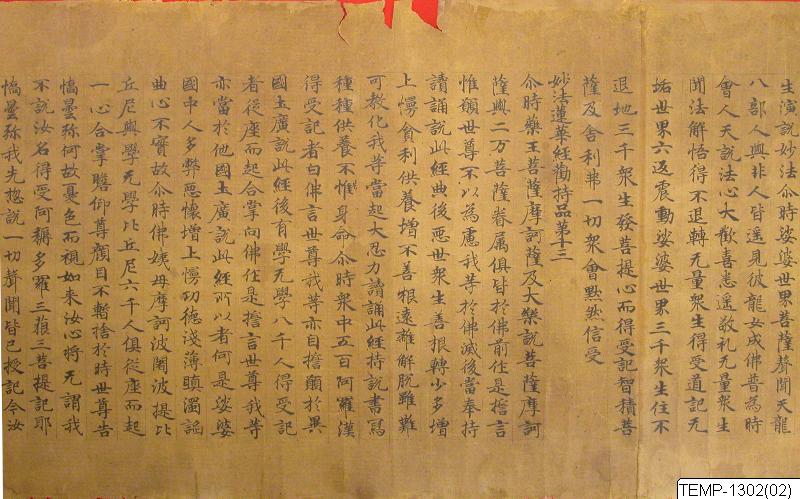 生演說妙法尒時娑婆世界菩薩聲聞天龍
八部人與非人皆遥見彼龍女成佛普為時
會人天說法心大歡喜悉遥敬礼无量衆生
聞法解悟得不退轉无量衆生得受道記无
垢世界六返震動娑婆世界三千衆生住不
退地三千衆生發菩提心而得受記智積菩
薩及舍利弗一切衆會黙然信受
妙法蓮華經勸持品第十三
尒時藥王菩薩摩訶薩及大樂說菩薩摩訶
薩與二万菩薩眷属俱皆於佛前作是誓言
惟願世尊不以為慮我等於佛滅後當奉持
讀誦說此經典後惡世衆生善根轉少多增
上慢貪利供養增不善根遠離解脫雖難
可教化我等當起大忍力讀誦此經持說書寫
種種供養不惟身命尒時衆中五百阿羅漢
得受記者白佛言世尊我等亦自誓願於異
國土廣說此經後有學无學八千人得受記
者從座而起合掌向佛作是誓言世尊我等
亦當於他國土廣說此經所以者何是娑婆
國中人多弊惡懷增上慢功德淺薄瞋濁諂
曲心不實故尒時佛姨母摩訶波闍波提比
丘尼與學无學比丘尼六千人俱從座而起
一心合掌瞻仰尊顏目不暫捨於時世尊告
憍曇弥何故憂色而視如来汝心將无謂我
不說汝名得受阿耨多羅三藐三菩提記耶
憍曇弥我先惣說一切聲聞皆已授記今汝
TEMP-1302(02)